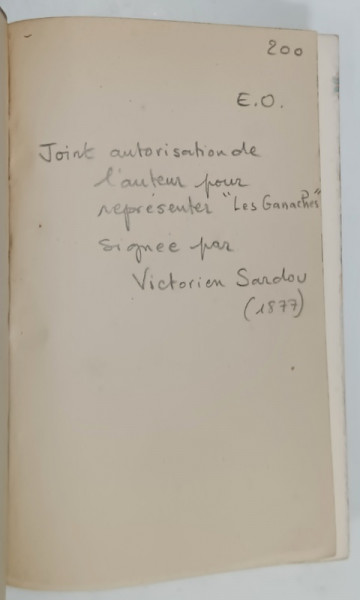 200
E.O.
Joint autorisation de
l'auteur pour
représenter "Les Ganaches"
signée par
Victorien Sardou
(1877)